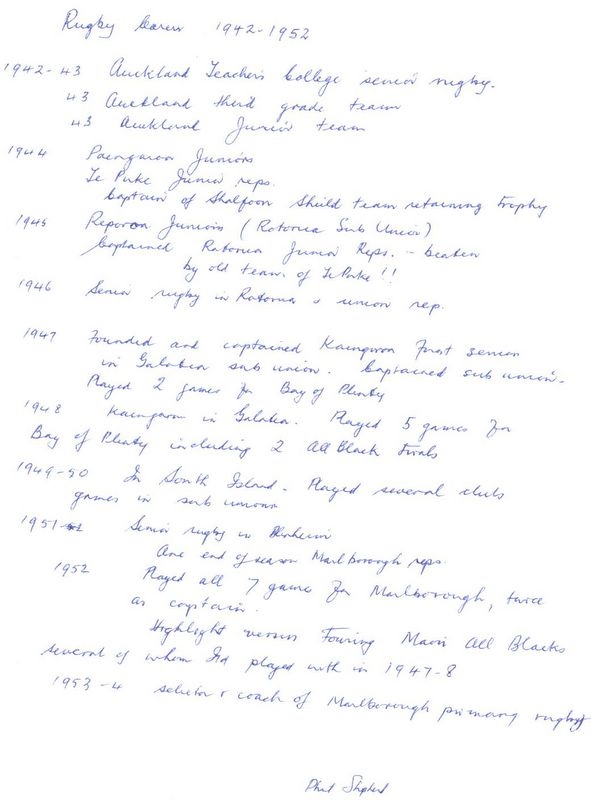 Rugby career 1942-1952
1942-43 Auckland Teachers College senior rugby.
43 Auckland third grade team
43 Auckland Junior team
1944 Paengaroa Juniors
Te Puke Junior reps.
Captain of Shalfoon Shield team retaining trophy
1945 Reporoa Juniors (Rotorua Sub Union)
Captained Rotorua Junior Reps. - beaten
by old team of Te Puke!!
1946 Senior rugby in Rotorua & union rep.
1947 Founded and captained Kaingaroa first senior
in Galatea sub union. Captained sub union.
Played 2 games for Bay of Plenty
1948 Kaingaroa in Galatea. Played 5 games for
Bay of Plenty including 2 All Black trials
1949-50 In South Island - Played several club
games in sub unions
1951 Senior rugby in Blenheim
One end of season Marlborough reps.
1952 Played all 7 games for Marlborough, twice
as captain.
Highlight versus Touring Maori All Blacks
several of whom I'd played with in 1947-8
1953-4 selector & coach of Marlborough primary rugby
Shepherd